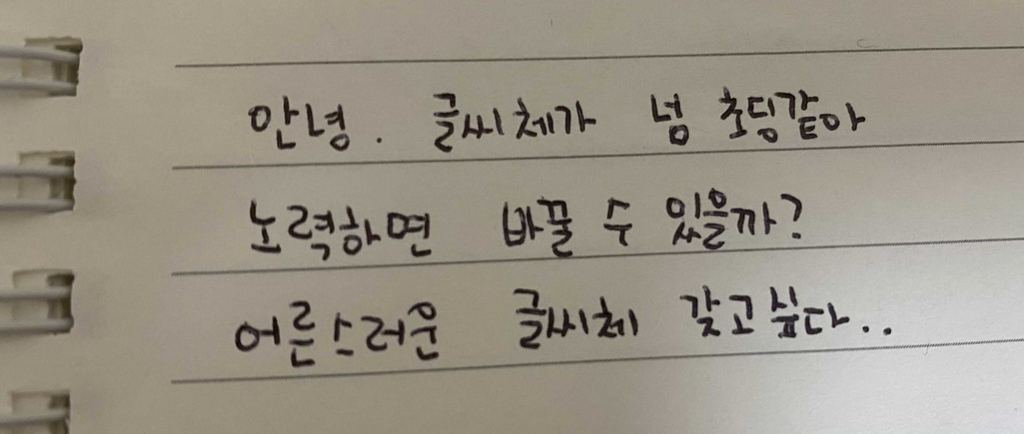 안녕. 글씨체가 넘 초딩같아
노력하면 바꿀 수 있을까?
어른스러운 글씨체 갖고싶다..